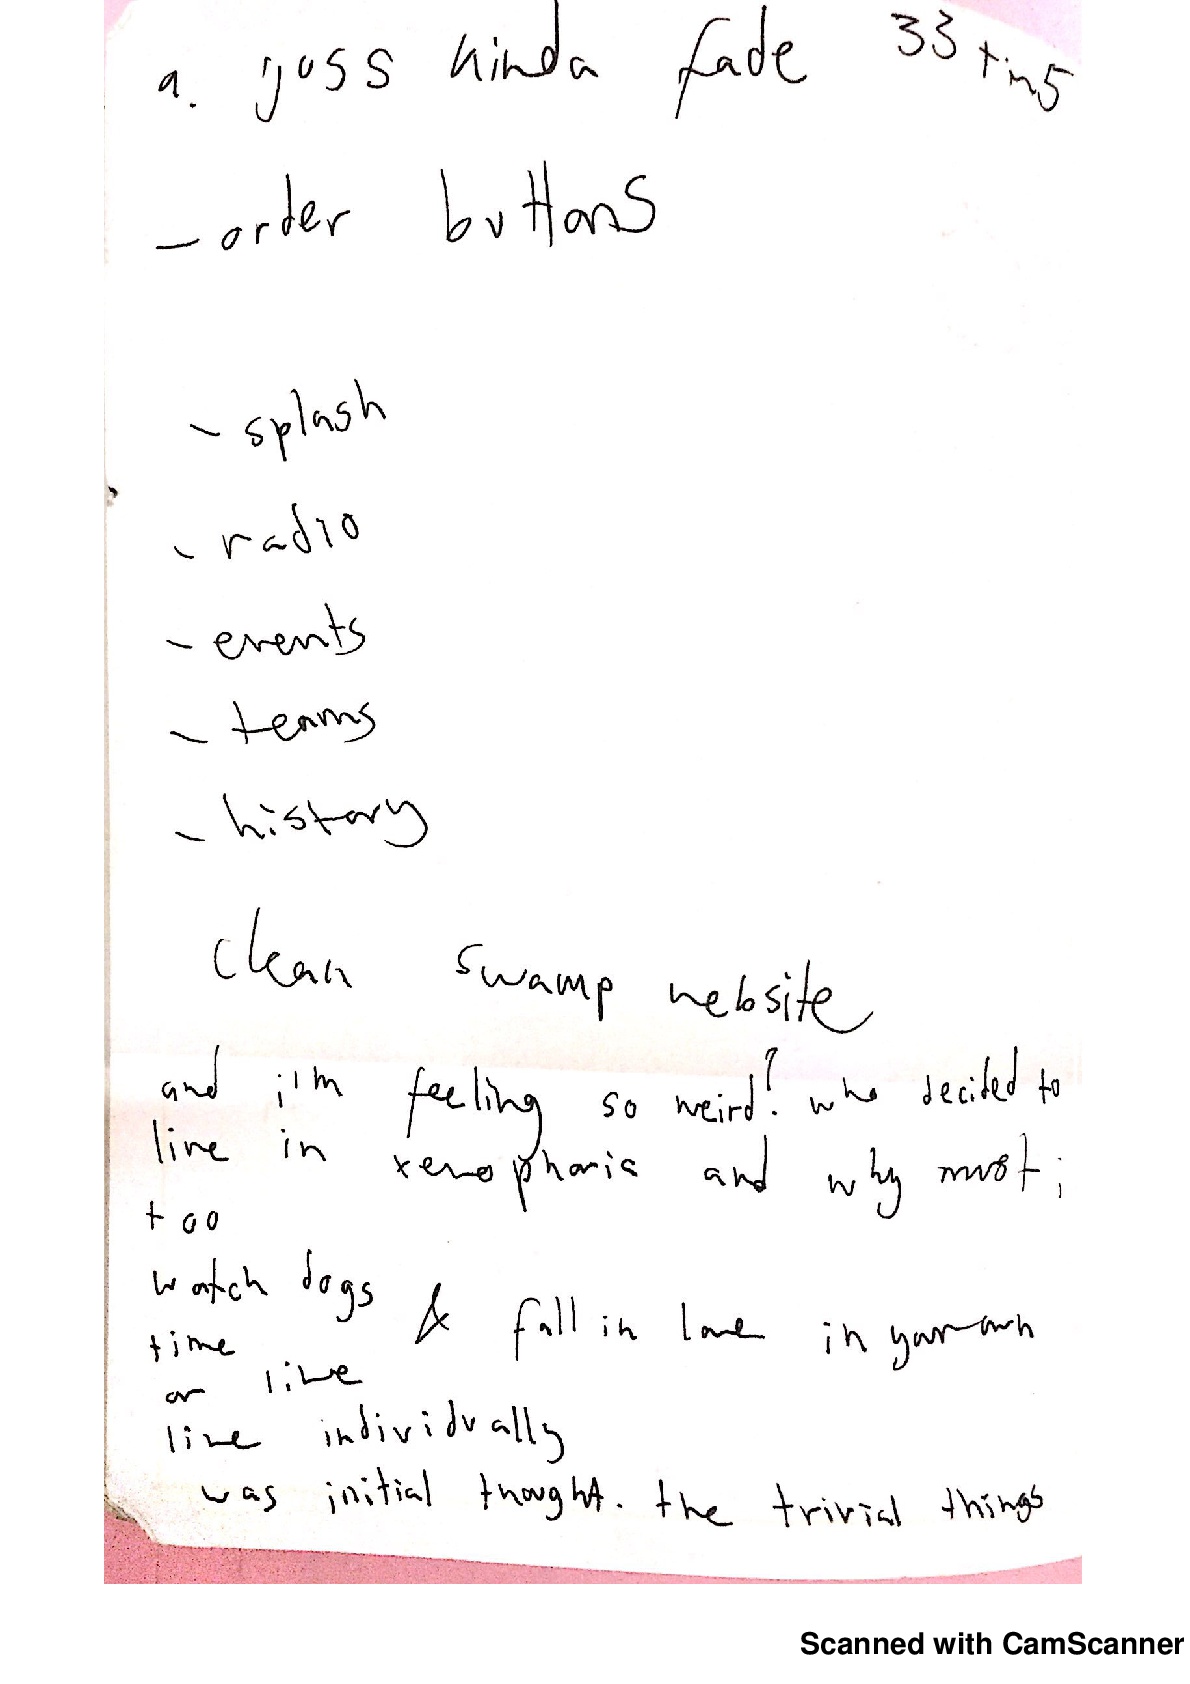 a. yoss kinda fade 33
- order buttons
- splash
- radio
- events
- teams
- history
clean swamp website
and i'm feeling so weird? who decided to
live in xenophoria and why must i
too
watch dogs & fall in love in your own
time
or live
live individually
was initial thought. the trivial things
Scanned with CamScanner